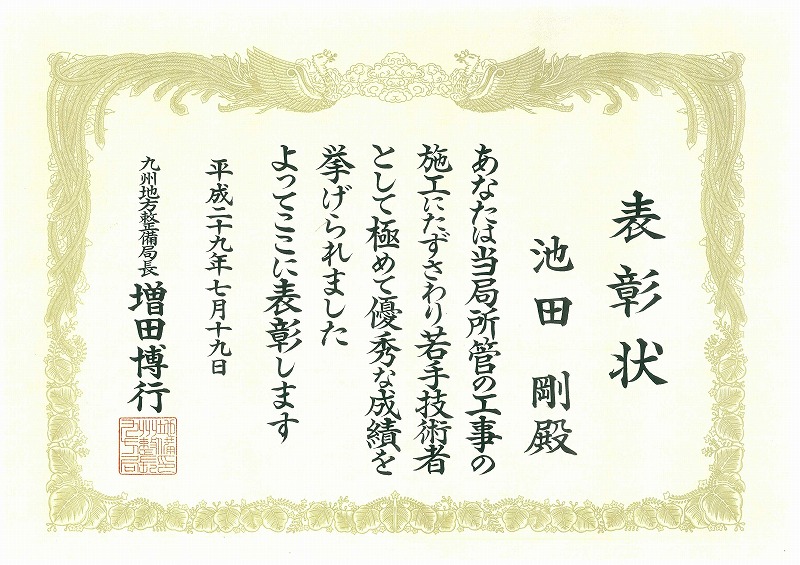 表彰状
池田 剛殿
あなたは当局所管の工事の
施工にたずさわり若手技術者
として極めて優秀な成績を
挙げられました
よってここに表彰します
平成二十九年七月十九日
九州地方整備局長 増田博行